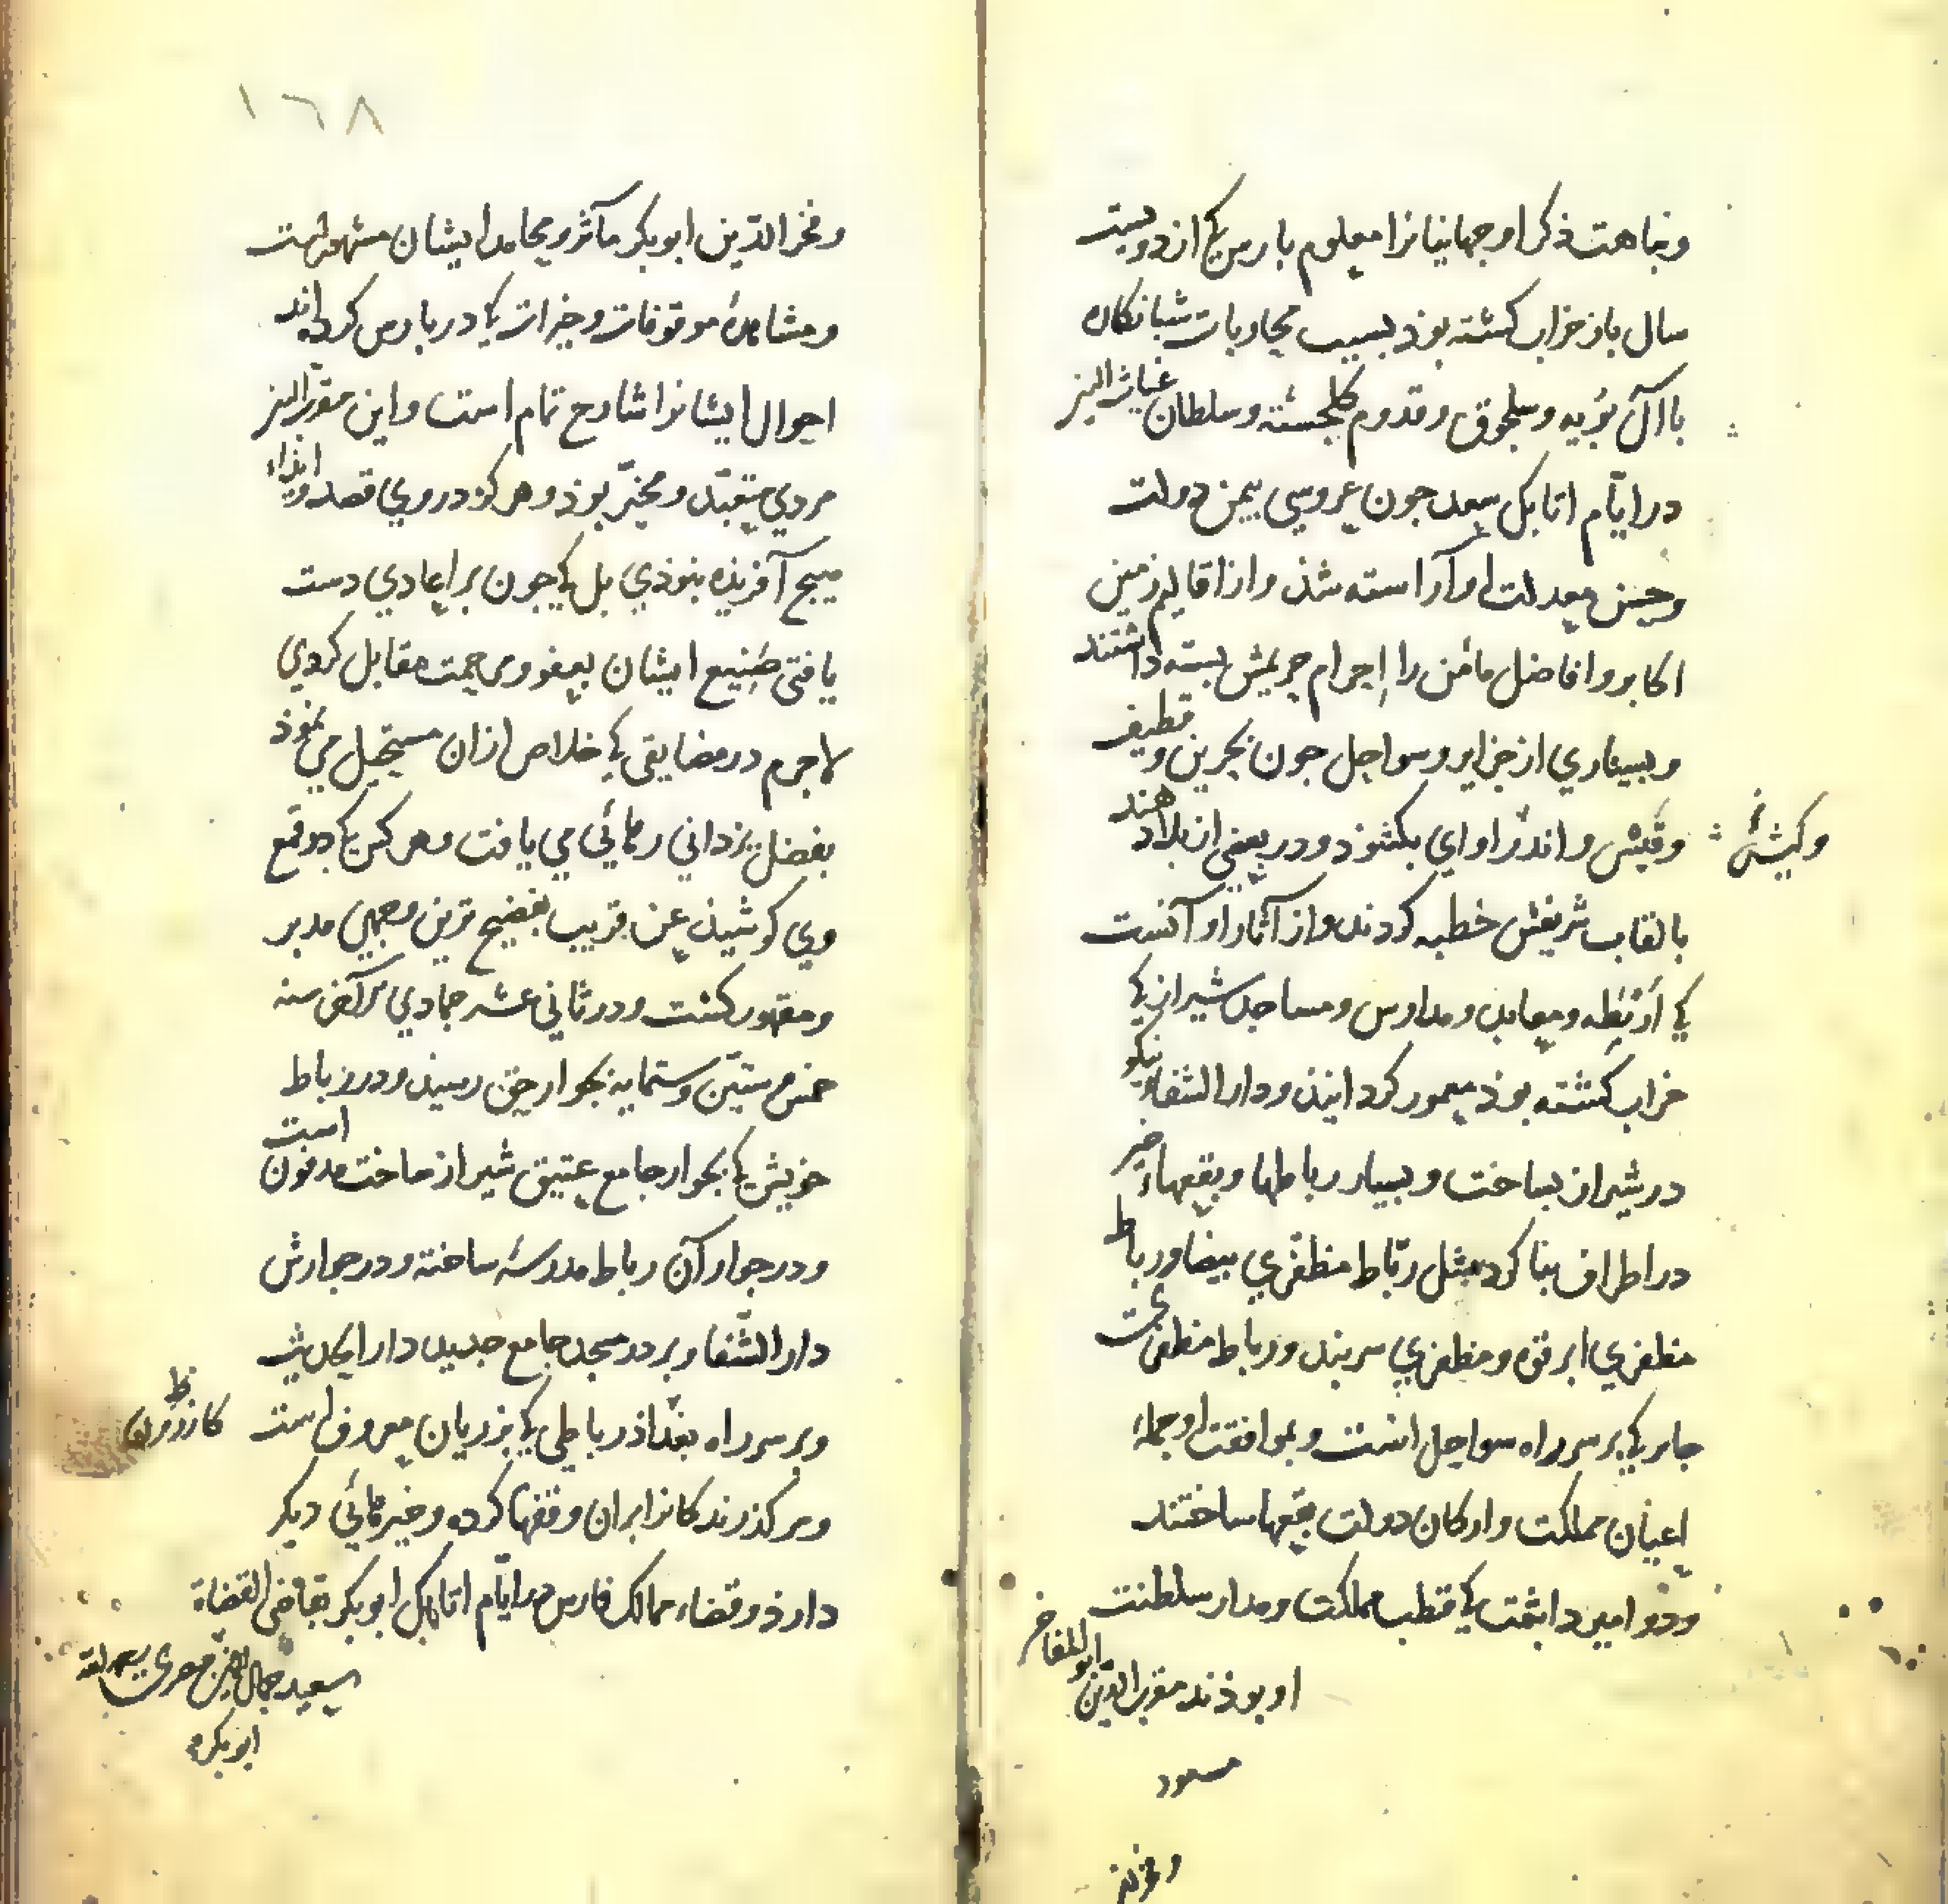 ونباهت ذکر او جهانیانرا معلوم پارس کی از دویست
سال باز خراب کشته بوذ بسبب محاربات شبانکاره
با آل بویه وسلجوق وقدوم کلجسته وسلطان غیاث الدین
در ایّام اتابک سعد جون عروسی بیمن دولت
وحسن معدلت او آراسته شذ واز اقالیم زمین
اکابر وافاضل مأمن را إحرام حریمش بسته داشتند
وبسیاری از جزایر وسواحل جون بحرین وقطیف
وقیش واندراوای بکشوذ ودر بعضی از بلاد هند
بالقاب شریفش خطبه کردند واز آثار او آنست
کی أربطه ومعابد ومدارس ومساجد شیراز کی
خراب کشته بوذ معمور کردانیذ ودار الشفاء نیکو
در شیراز بساخت وبسیار رباطها وبقعهاء خیر
در اطراف بنا کرد مثل رباط مظفّری بیضا ورباط
مظفری ابرقوه ومظفری سربند ورباط مظفری
جابر کی بر سر راه سواحل است وبموافقت او جمله
اعیان مملکت وارکان دولت بقعها ساختند
ودو امیر داشت کی قطب مملکت ومدار سلطنت
او بوذند مقرب الدین ابو المفاخر
مسعود
وفخر الدین
١٦٨
وفخر الدّین ابوبکر مآثر ومحامد ایشان مشهورست
ومشاهدهٔ موقوفات وخیرات کی در پارس کرده اند
احوال ایشانرا شارح تمام است واین مقرّب الدین
مردی متعبّد ومخیّر بوذ وهرکز در وی قصد وایذاء
هیج آفریذه نبوذی بل کی جون بر اعادی دست
یافتی صنیع ایشان بعفو ومرحمت مقابل کردی
لا جرم در مضایقی کی خلاص از ان مستحیل می نموذ
بفضل یزدانی رهائی می یافت وهر کس کی در قمع
وی کوشید عن قریب بفضیح ترین وجهی مدبر
ومقهور کشت ودر ثانی عشر جمادی الآخر سنه
خمس وستّین وستمایه بجوار حق رسید ودر رباط
خویش کی بجوار جامع عتیق شیراز ساخت مدفون است
ودر جوار آن رباط مدرسهٔ ساخته ودر جوارش
دار الشّفا وبر در مسجد جامع جدید دار الحدیث
وبر سر راه بغداذ رباطی کی بزریان معروف است
وبر کذرندکانرا بران وقفها کرده وخیرهائی دیکر
دارذ وقضاء ممالک فارس در ایّام اتابک ابوبکر بقاضی القضاة
سعید جمال الدین مصری
ابوبکر